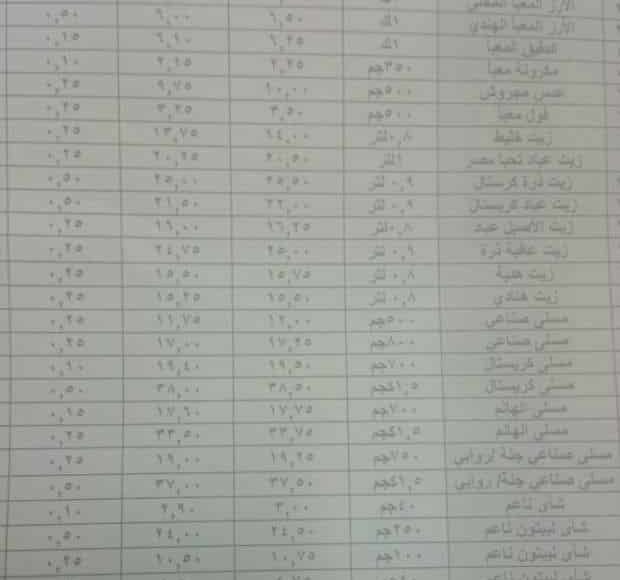 الأرز المعبأ المحلى ١ك ٦,٥٠ ٦,٠٠ ٠,٥٠
الأرز المعبأ الهندي ١ك
الدقيق المعبأ ١ك ٦,٢٥ ٦,١٠ ٠,١٥
مكرونة معبأ ٣٥٠جم ٢,٢٥ ٢,١٥ ٠,١٠
عدس مجروش ٥٠٠جم ١٠,٠٠ ٩,٧٥ ٠,٢٥
فول معبأ ٥٠٠جم ٣,٥٠ ٣,٢٥ ٠,٢٥
زيت خليط ٠,٨لتر ١٤,٠٠ ١٣,٧٥ ٠,٢٥
زيت عباد تحيا مصر ١لتر ٢٠,٥٠ ٢٠,٢٥ ٠,٢٥
زيت ذرة كرستال ٠,٩ لتر ٢٥,٥٠ ٢٥,٠٠ ٠,٥٠
زيت عباد كريستال ٠,٩ لتر ٢٢,٠٠ ٢١,٥٠ ٠,٥٠
زيت الأصيل عباد ٠,٨لتر ١٦,٢٥ ١٦,٠٠ ٠,٢٥
زيت عافية ذرة ٠,٩ لتر ٢٥,٠٠ ٢٤,٧٥ ٠,٢٥
زيت هدية ٠,٨ لتر ١٥,٧٥ ١٥,٥٠ ٠,٢٥
زيت هنادي ٠,٨ لتر ١٥,٥٠ ١٥,٢٥ ٠,٢٥
مسلى صناعي ٥٠٠جم ١٢,٠٠ ١١,٧٥ ٠,٢٥
مسلى صناعي ٨٠٠جم ١٧,٢٥ ١٧,٠٠ ٠,٢٥
مسلى كريستال ٧٠٠جم ١٩,٥٠ ١٩,٤٠ ٠,١٠
مسلى كريستال ١,٥كجم ٣٨,٥٠ ٣٨,٠٠ ٠,٥٠
مسلى الهانم ٧٠٠جم ١٧,٧٥ ١٧,٦٠ ٠,١٥
مسلى الهانم ١,٥كجم ٣٣,٧٥ ٣٣,٥٠ ٠,٢٥
مسلى صناعي جنة /روابي ٧٥٠جم ١٩,٢٥ ١٩,٠٠ ٠,٢٥
مسلى صناعي جنة/ روابي ١,٥كجم ٣٧,٥٠ ٣٧,٠٠ ٠,٥٠
شاى ناعم ٤٠جم ٣,٠٠ ٢,٩٠ ٠,١٠
شاى ليبتون ناعم ٢٥٠جم ٢٤,٥٠ ٢٤,٠٠ ٠,٥٠
شاى ليبتون ناعم ١٠٠جم ١٠,٧٥ ١٠,٥٠ ٠,٢٥